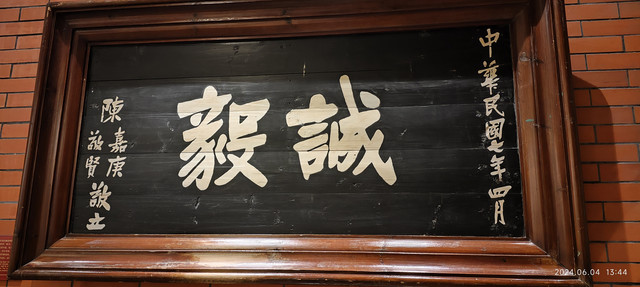 中華民國七年四月
誠毅
陳嘉庚
敬賢敬立
2024.06.04 13:44